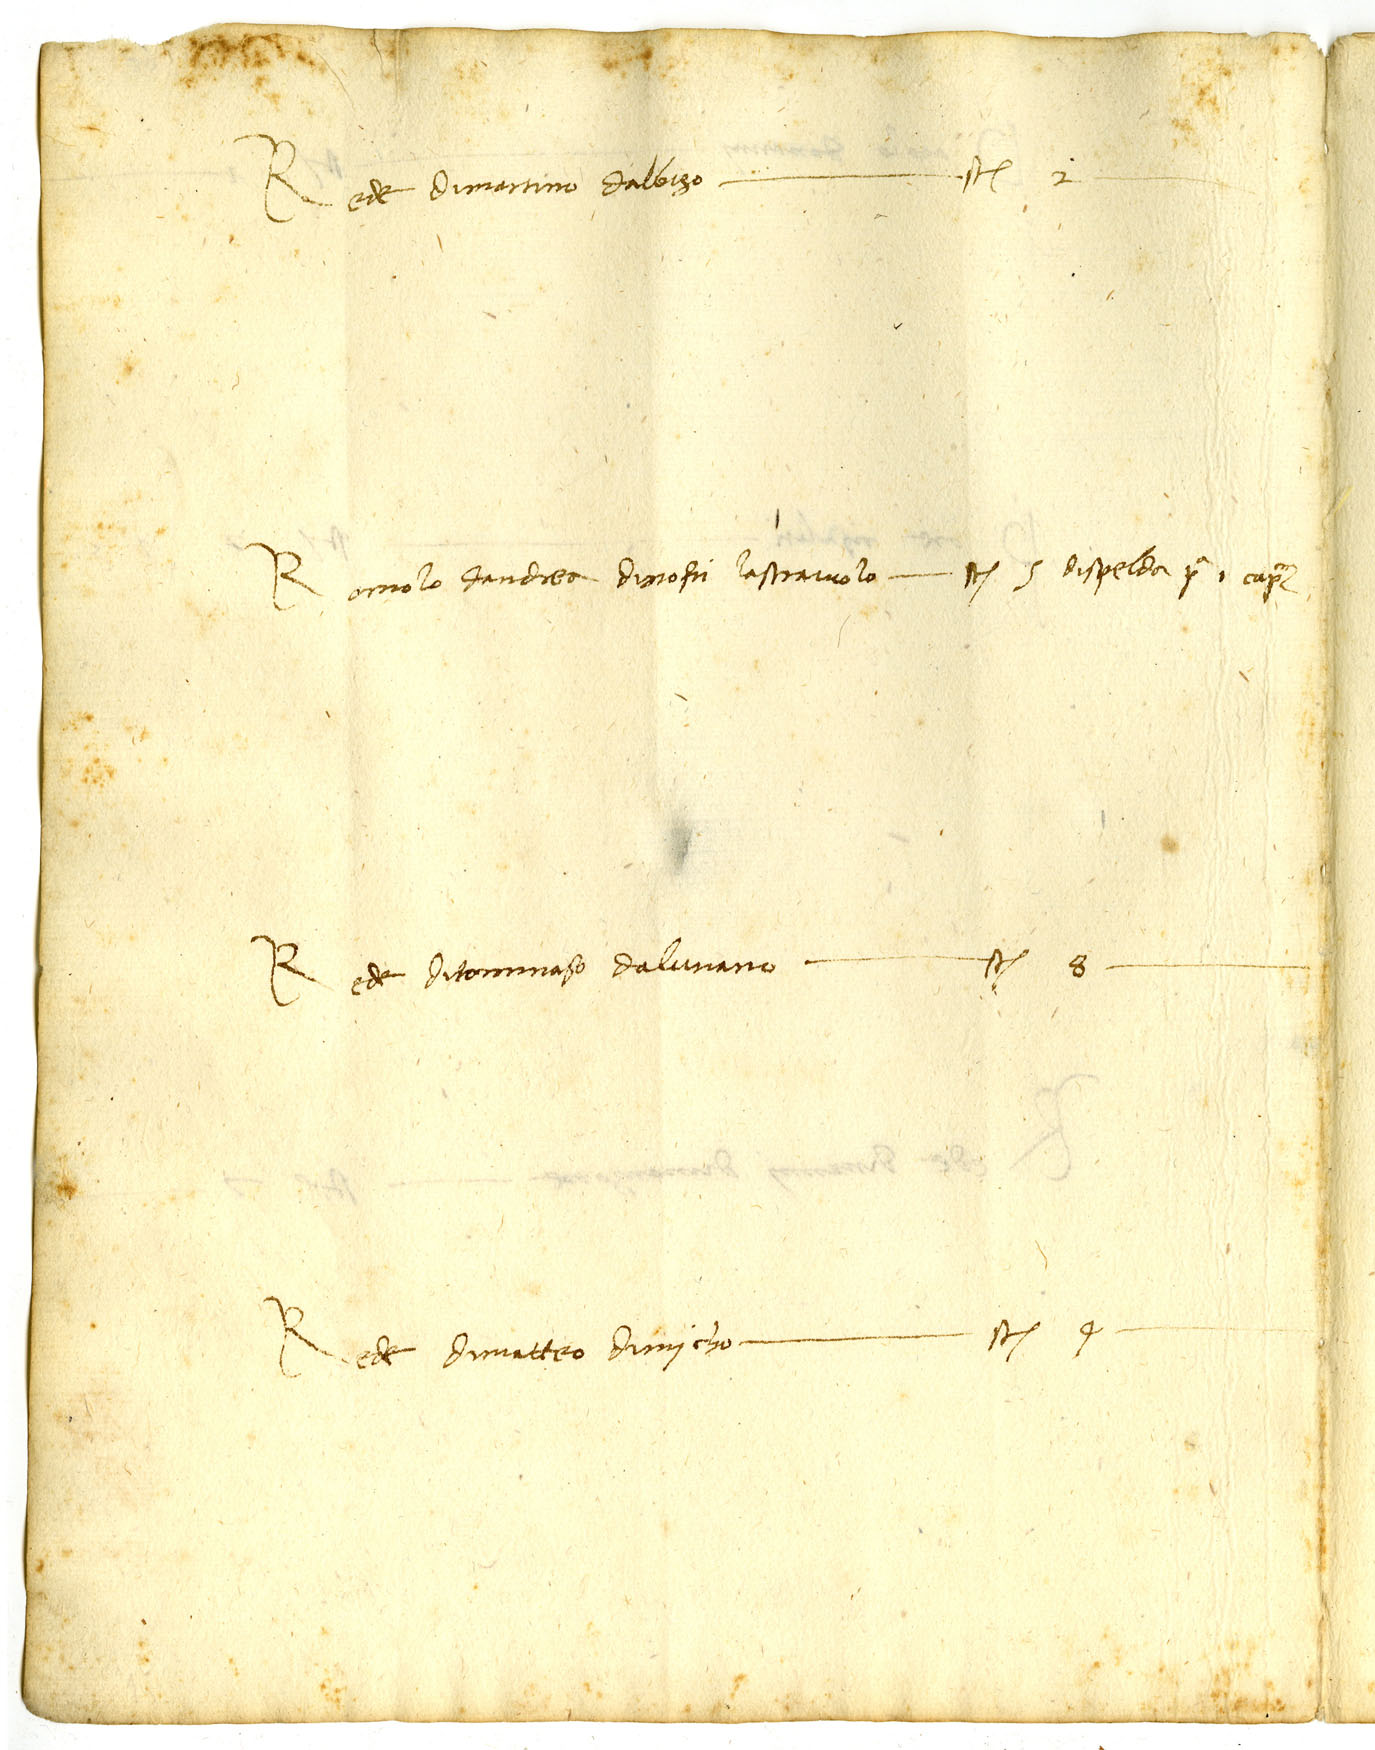 Rede dimartino dalbizo — st 2
Romolo dandrea dinofri lastraiuolo — st 5 dispelda pa 1
Rede ditommaso — st 8
Rede dimatteo dimicho — st 4